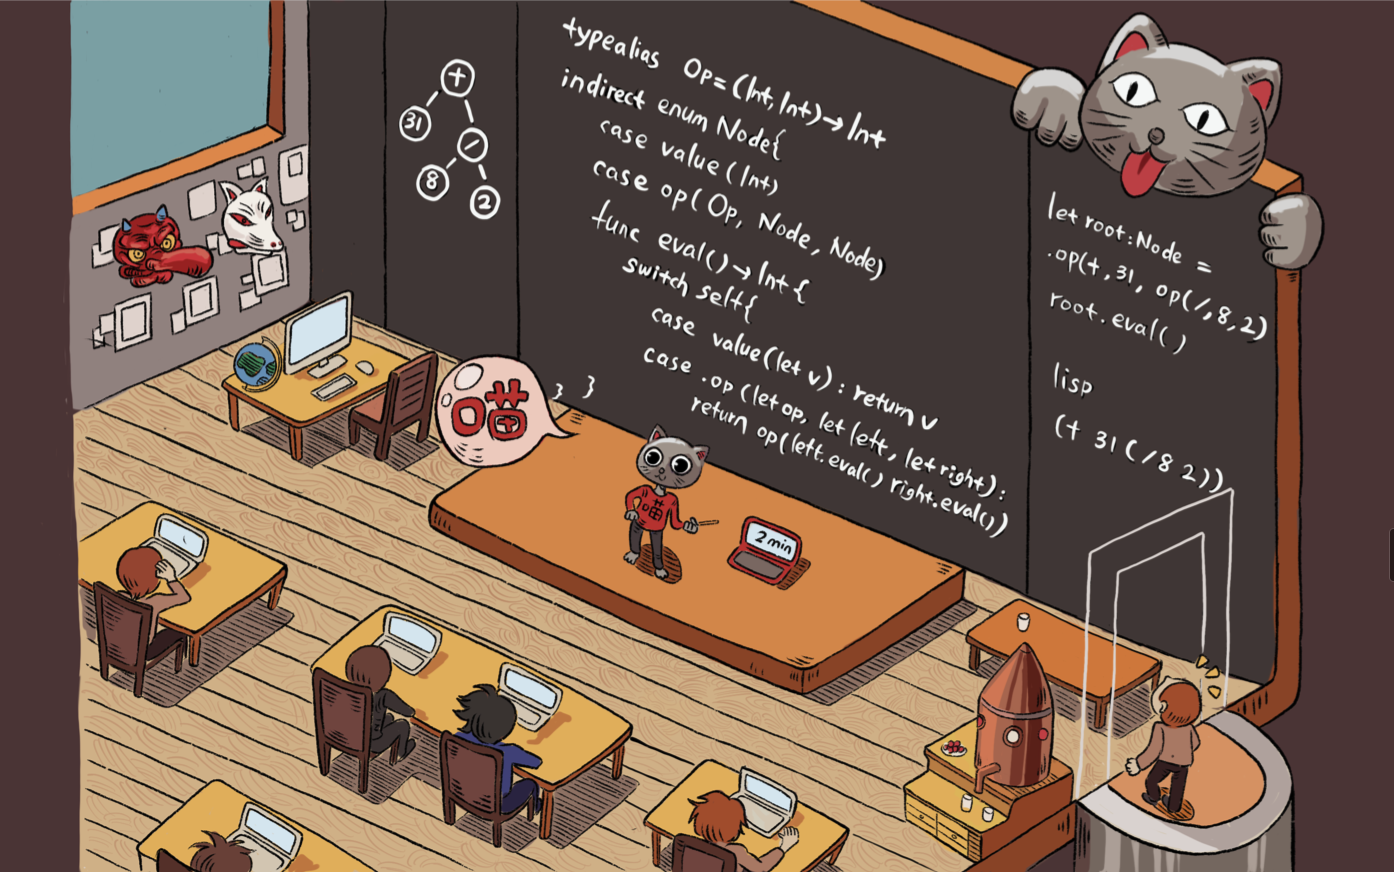 +
31
/
8
2
typealias Op=(Int,Int)→Int
indirect enum Node{
case value(Int)
case op(Op, Node, Node)
func eval()→Int{
switch self{
case value(let v): return v
case .op(let op, let left, let right):
return op(left.eval() right.eval())
} }
let root:Node =
.op(+,31, op(/,8,2)
root.eval()
lisp
(+ 31 (/ 8 2))
喵
喵
2 min